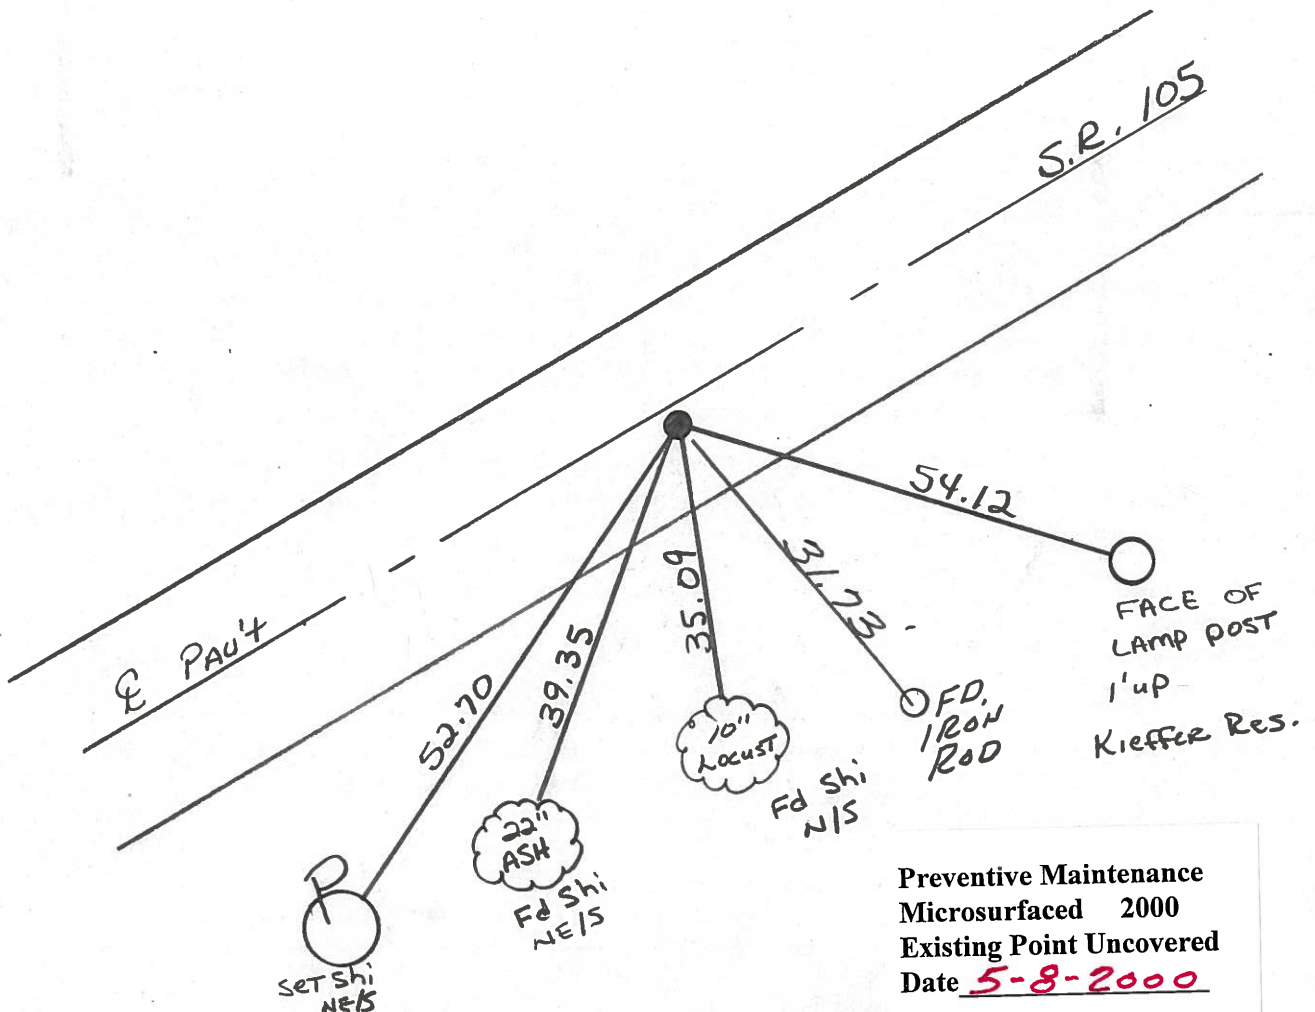 S.R. 105
℄ PAV't
54.12
31.73
35.09
39.35
52.70
FACE OF
LAMP POST
1' up
Kieffer Res.
FD.
IRON
ROD
10"
Locust
Fd Shi
N/S
22"
ASH
Fd Shi
NE/S
P
SET Shi
NE/S
Preventive Maintenance
Microsurfaced 2000
Existing Point Uncovered
Date 5-8-2000